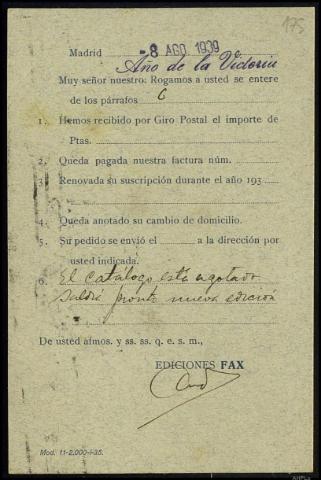 175
Madrid -8 AGO 1939
Año de la Victoria
Muy señor nuestro: Rogamos a usted se entere
de los párrafos 6
1. Hemos recibido por Giro Postal el importe de
Ptas.
2. Queda pagada nuestra factura núm.
3. Renovada su suscripción durante el año 193
4. Queda anotado su cambio de domicilio.
5. Su pedido se envió el a la dirección por
usted indicada.
6. El catálogo está agotado
Saldrá pronto nueva edición
De usted afmos. y ss. ss. q. e. s. m.,
EDICIONES FAX
Mod. 11-2.000-I-35.